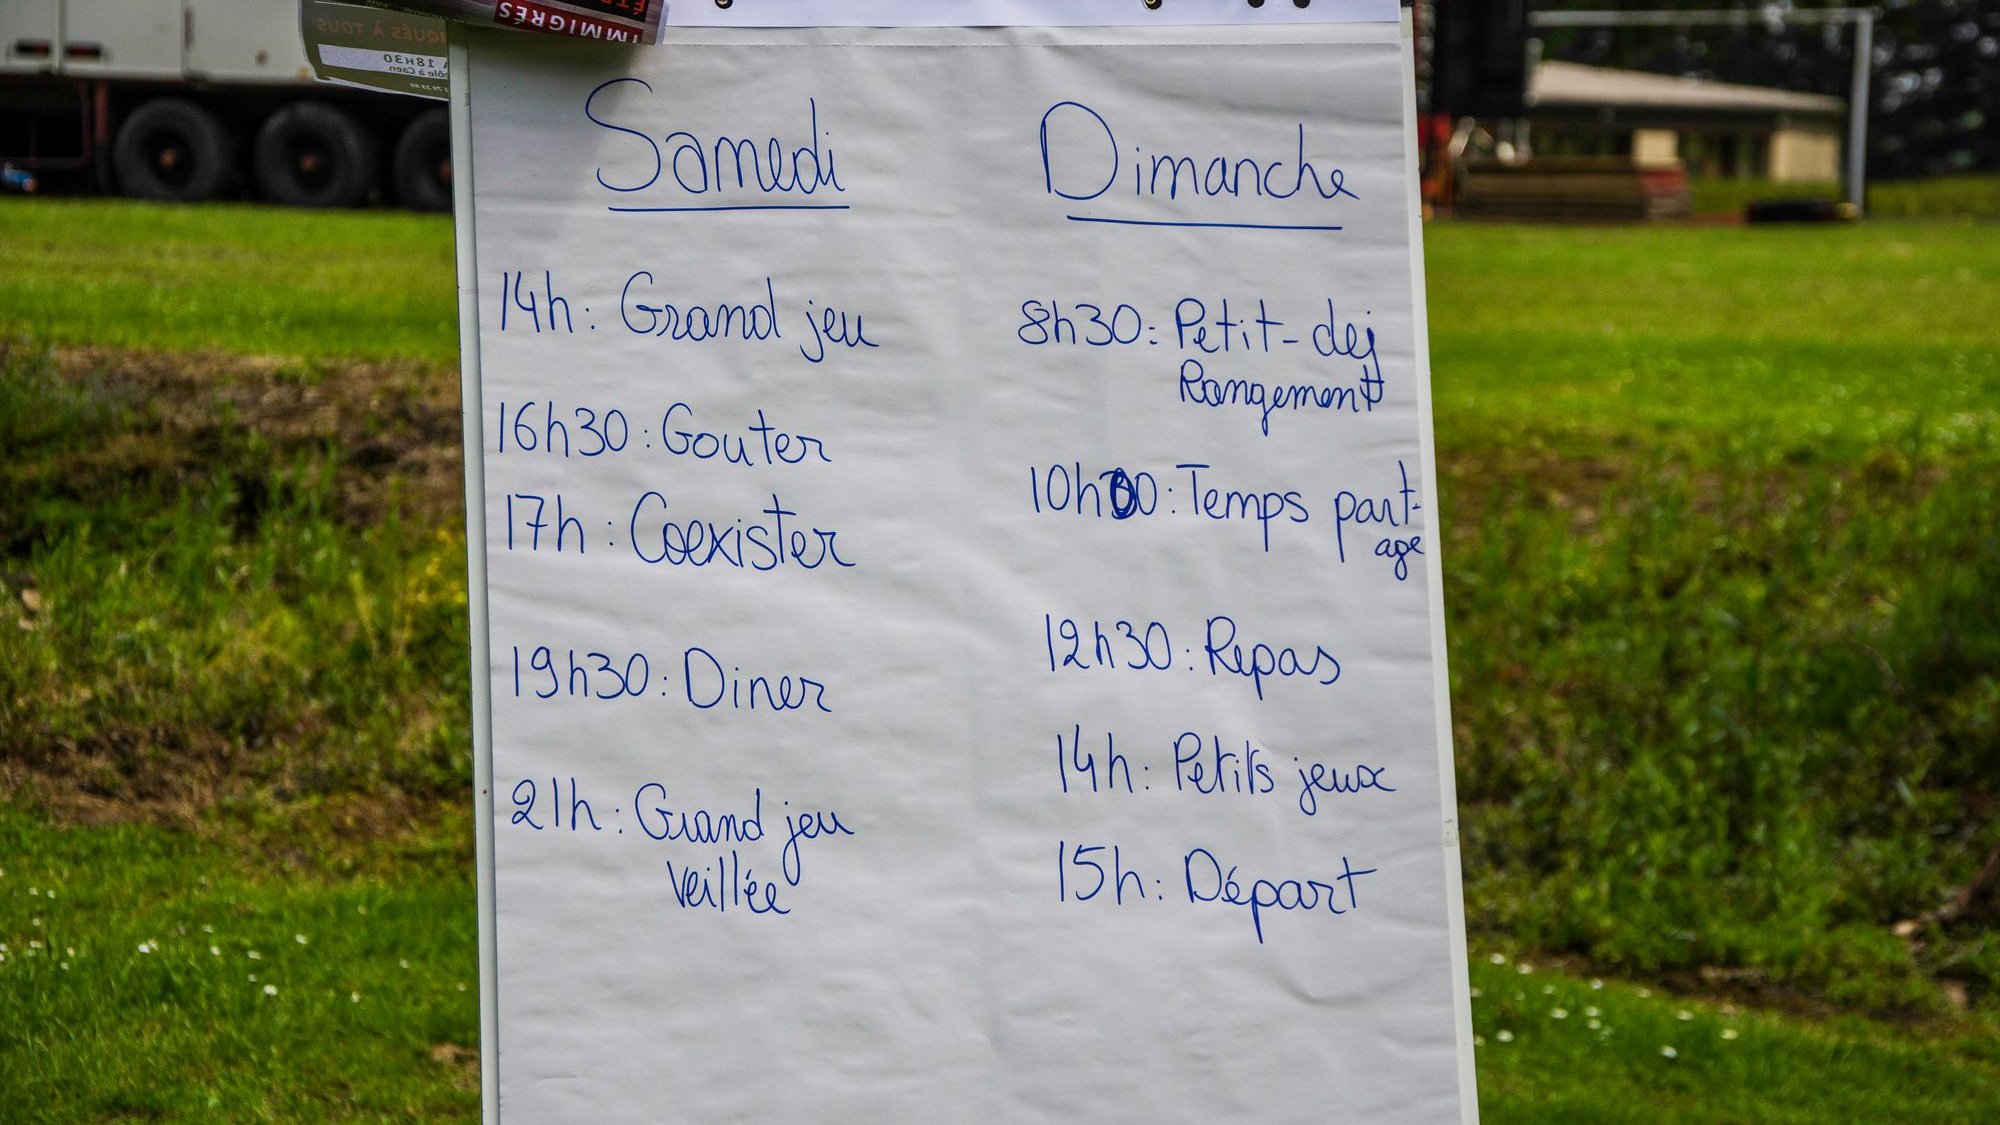 IMMIGRÉS
IQUÉS À TOUS
À 18H30
ôle à Caen
Samedi
14h : Grand jeu
16h30 : Gouter
17h : Coexister
19h30 : Diner
21h : Grand jeu
Veillée
Dimanche
8h30 : Petit-dej
Rangement
10h00 : Temps part-
age
12h30 : Repas
14h : Petits jeux
15h : Départ